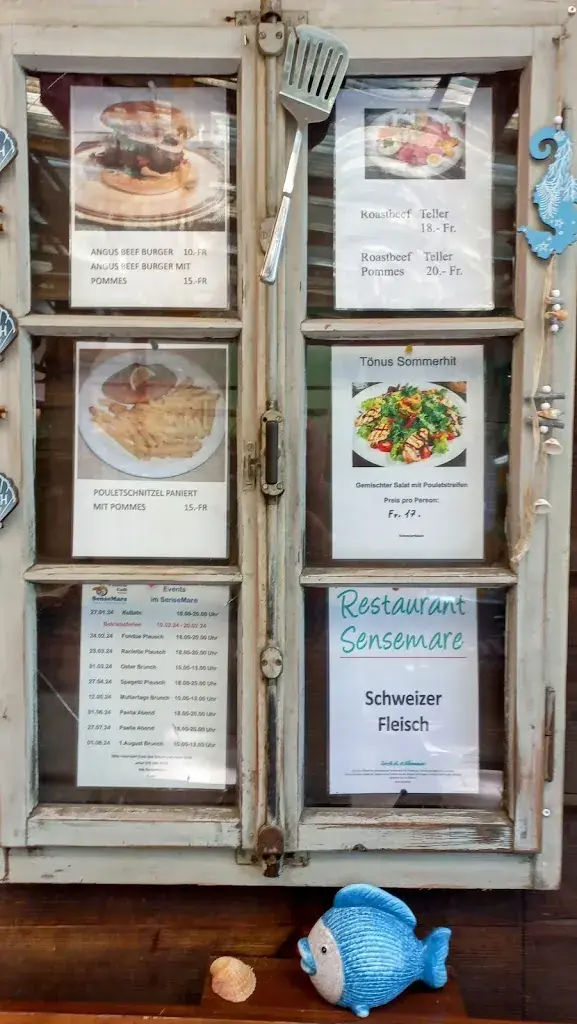 ANGUS BEEF BURGER 10.-FR
ANGUS BEEF BURGER MIT
POMMES 15.-FR
Roastbeef Teller
18.- Fr.
Roastbeef Teller
Pommes 20.- Fr.
POULETSCHNITZEL PANIERT
MIT POMMES 15.-FR
Tönus Sommerhit
Gemischter Salat mit Pouletstreifen
Preis pro Person:
Fr. 17.
SenseMare
Events
im SenseMare
27.01.24 18.00-20.00 Uhr
Betriebsferien 10.02.24 - 20.02.24
24.02.24 Fondue Plausch 18.00-20.00 Uhr
Raclette Plausch 18.00-20.00 Uhr
Oster Brunch 10.00-13.00 Uhr
27.04.24 Spagetti Plausch 18.00-20.00 Uhr
12.05.24 Muttertags Brunch 10.00-13.00 Uhr
Paella Abend 18.00-20.00 Uhr
27.07.24 Paella Abend 18.00-20.00 Uhr
01.08.24 1.August Brunch 10.00-13.00 Uhr
Restaurant
Sensemare
Schweizer
Fleisch